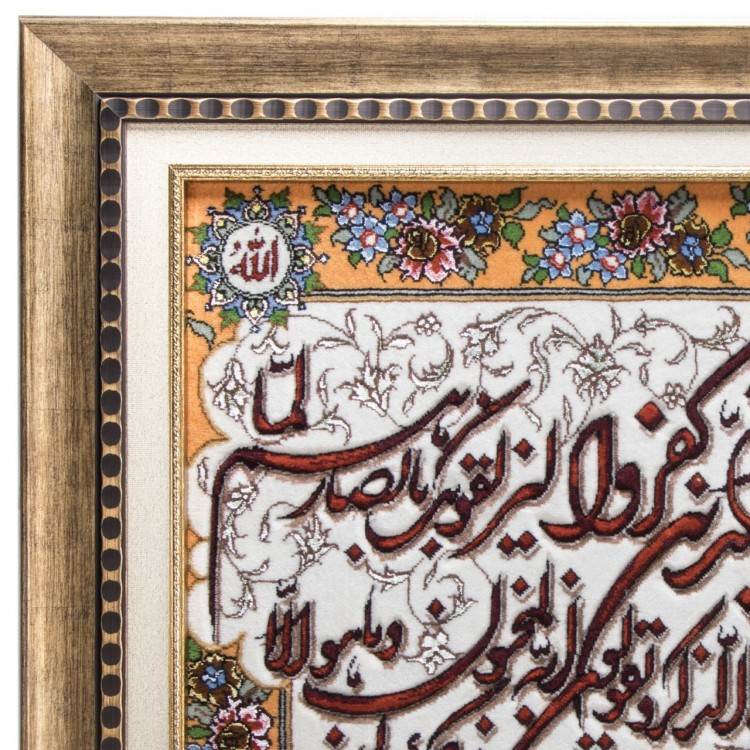 الله
كفروا ليزلقونك بابصارهم لما
الذكر و يقولون انه لمجنون و ما هو الا